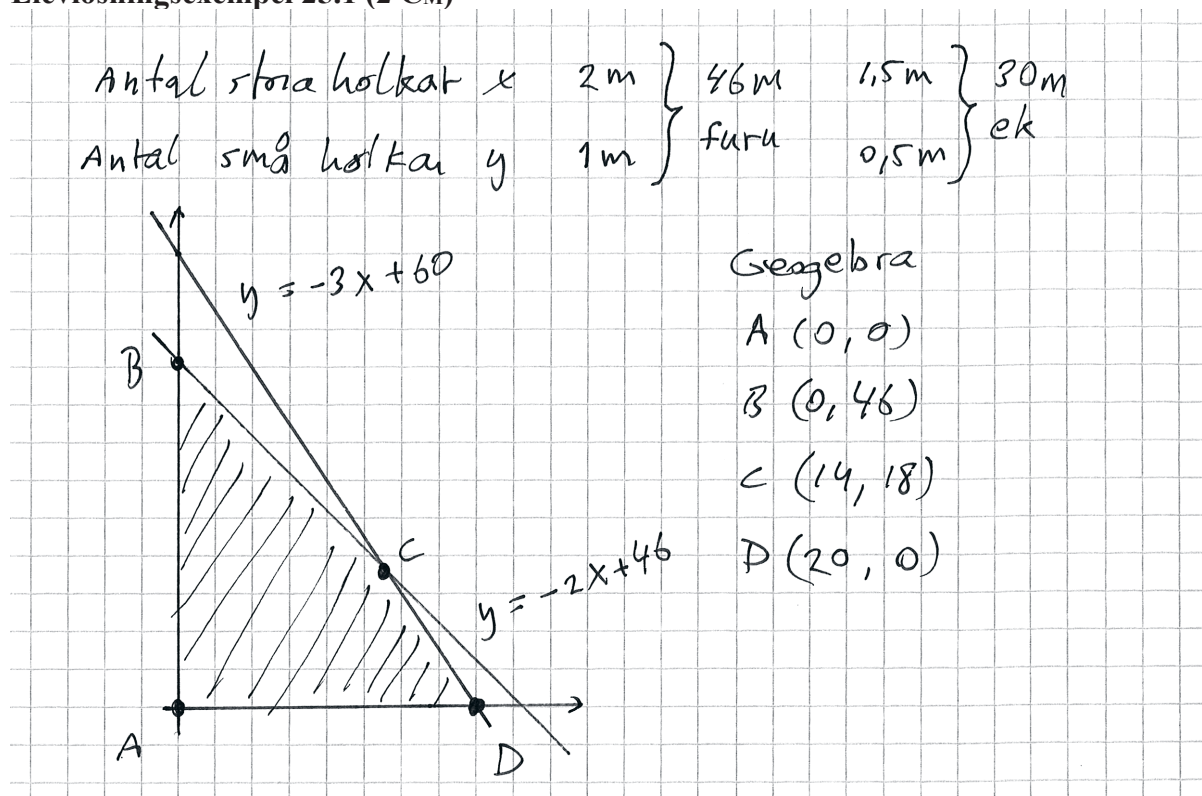 Elevlösningsexempel 23.1 (2 CM)
Antal stora holkar x 2m } 46m furu 1,5m } 30m ek
Antal små holkar y 1m 0,5m
y = -3x + 60
Geogebra
A (0, 0)
B
B (0, 46)
C (14, 18)
C
D (20, 0)
y = -2x + 46
A
D